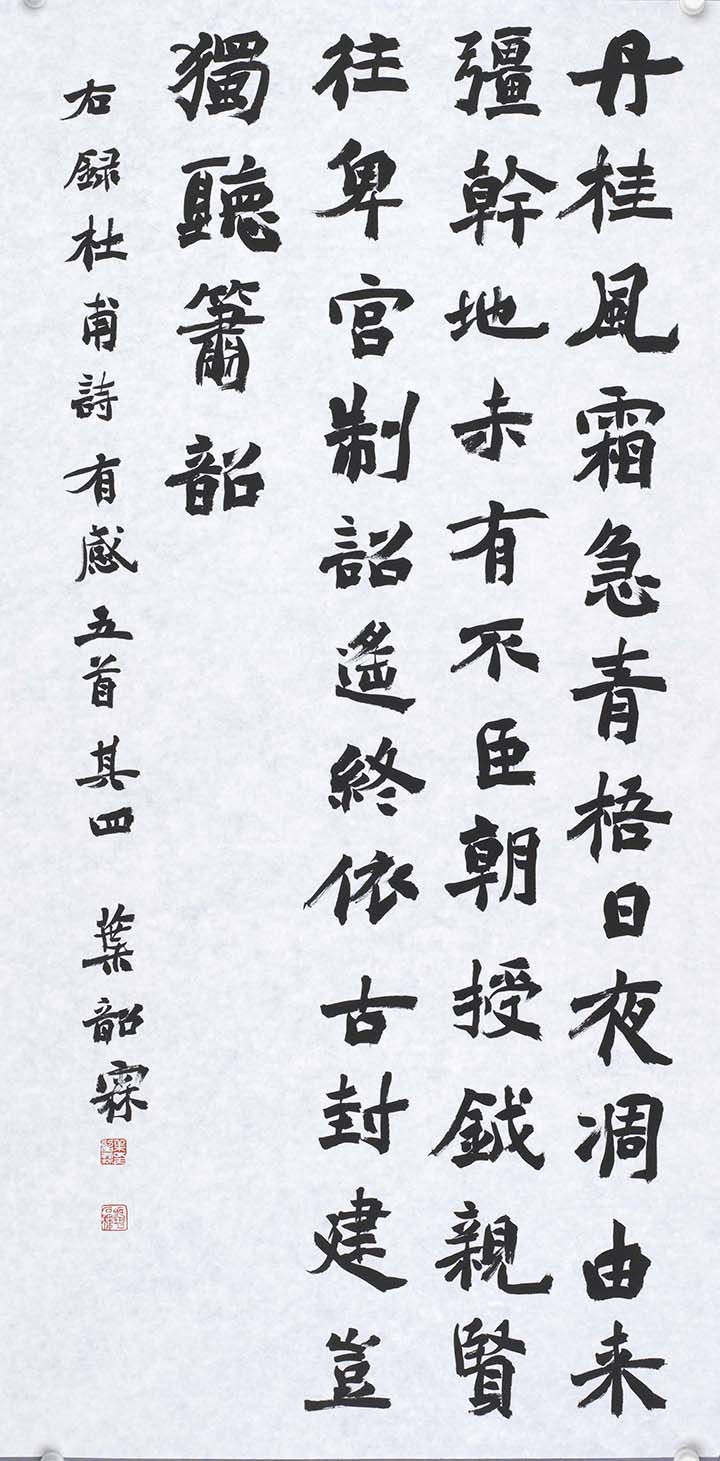 丹桂風霜急青梧日夜凋由来
彊幹地未有不臣朝授鉞親賢
往卑宮制詔遙終依古封建豈
獨聽簫韶
右録杜甫詩有感五首其四 葉韶霖